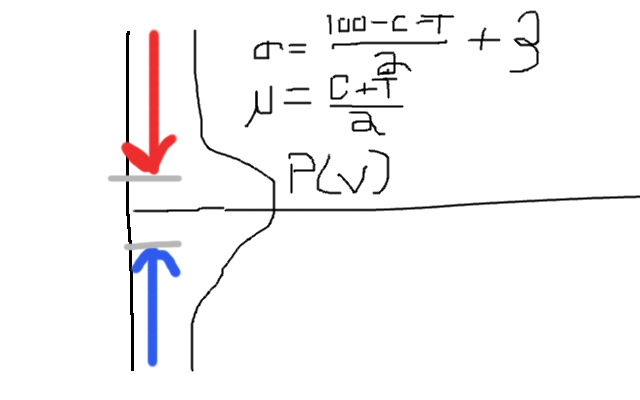 σ = (100-C-T)/2 + 3
μ = (C+T)/2
P(v)